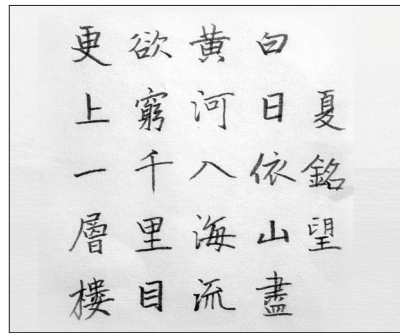 夏銘望
白日依山盡
黃河入海流
欲窮千里目
更上一層樓